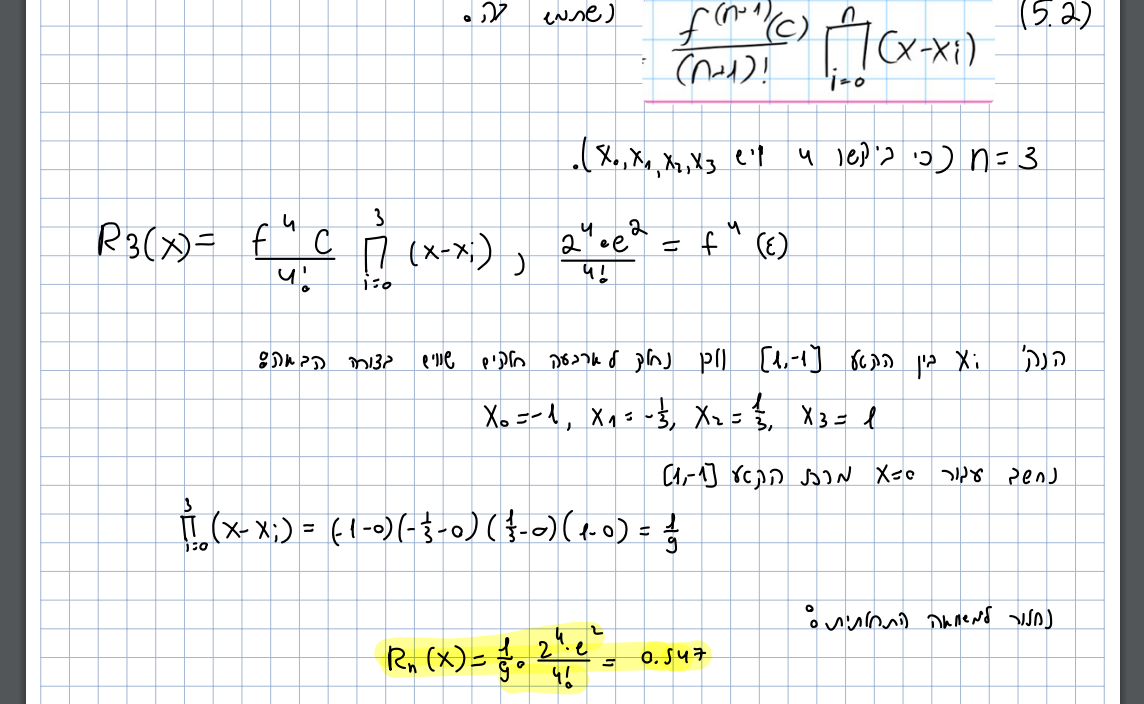 נשתמש ב: f^(n+1)(c)/(n+1)! ∏_{i=0}^{n} (x-xi) (5.2)
n=3 (כי ביקשו 4 x₀,x₁,x₂,x₃).
R3(x) = f^4 c/4! ∏_{i=0}^{3} (x-xi), 2^4·e^2/4! = f^4(ε)
הנק' xi בין הקטע [1,-1] ולכן נחלק לארבעה חלקים שווים בצורה הבאה:
x₀=-1, x₁=-1/3, x₂=1/3, x₃=1
נחשב עבור x=0 מרכז הקטע [1,-1]
∏_{i=0}^{3} (x-xi) = (-1-0)(-1/3-0)(1/3-0)(1-0) = 1/9
נחזור למשוואה התחלתית:
Rn(x) = 1/9 · 2^4·e^2/4! = 0.547